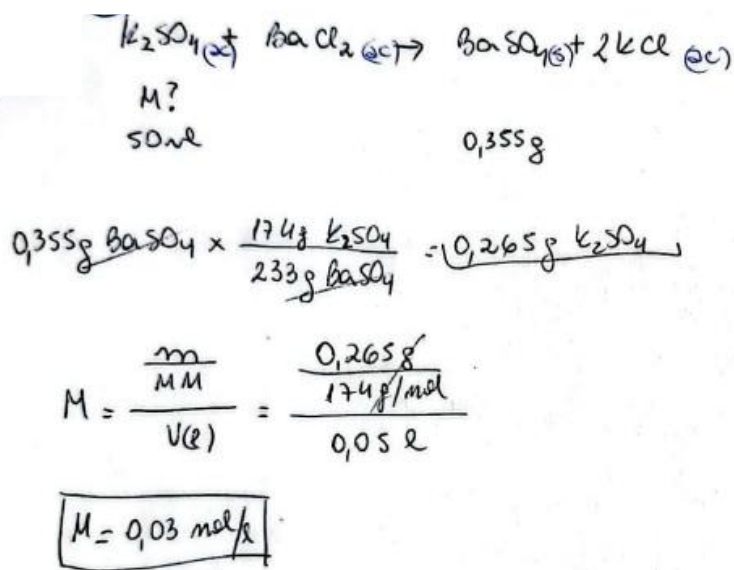 K₂SO₄(ac) + BaCl₂(ac) → BaSO₄(s) + 2KCl (ac)
M?
50 ml 0,355g
0,355g BaSO₄ × 174g K₂SO₄ / 233g BaSO₄ = 0,265g K₂SO₄
M = (m / MM) / V(l) = (0,265g / 174g/mol) / 0,05 l
M = 0,03 mol/l